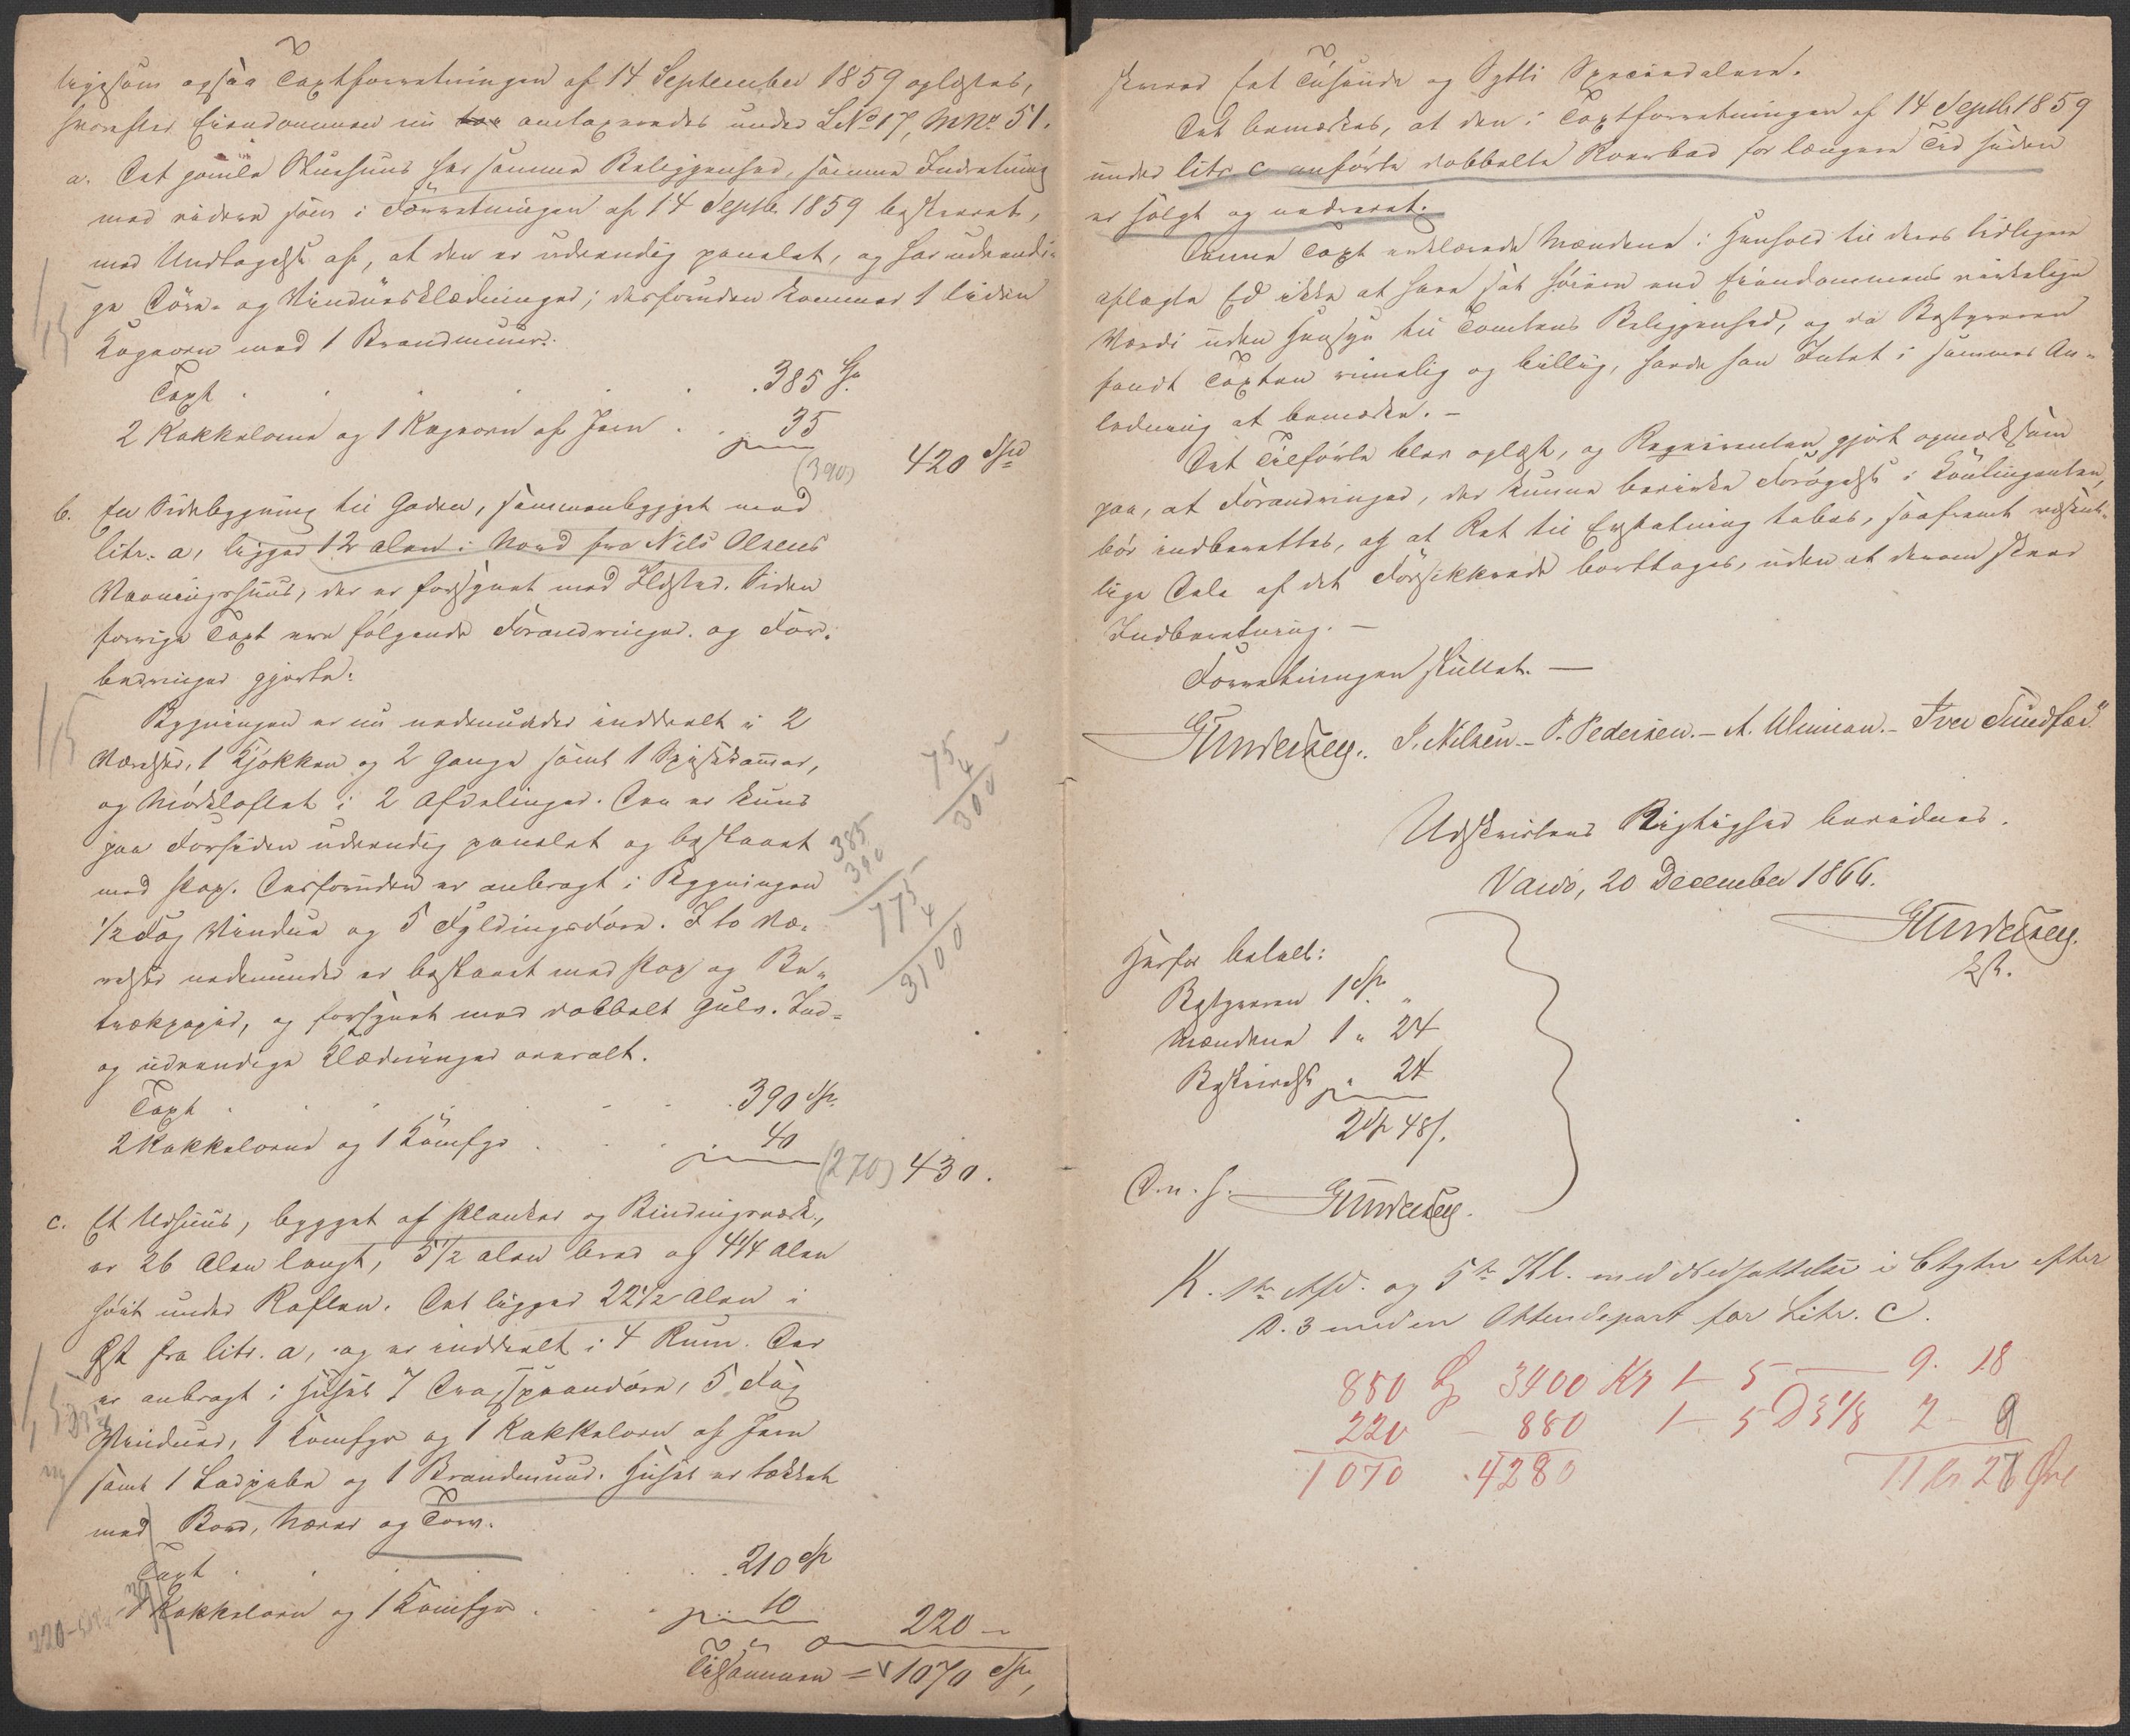 ligesom ogsaa Taxtforretningen af 14 September 1859 oplæstes,
hvorefter Eiendommen nu omtaxeredes under L.No 17, MNo 51.
a. Det gamle Vaaningshuus har samme Beliggenhed, samme Indretning
med videre som i Forretningen af 14 Septbr 1859 beskrevet,
med Undtagelse af, at den er udvendig panelet, og har udvendi-
ge Døre- og Vindueklædninger; desforuden kommer 1 liden
Kogeovn med 1 Brandmuur.
Taxt . . . . . 385 Sp.
2 Kakkelovne og 1 Kogeovn af Jern . . 35
(390) 420 Spd
b. En Sidebygning til Gaden, sammenbygget med
litr. a, ligger 12 Alen i Nord fra Nils Olsens
Vaaningshuus, der er forsynet med Ildsted. Siden
forrige Taxt ere følgende Forandringer og For-
bedringer gjorte:
Bygningen er nu nedenunder inddeelt i 2
Værelser, 1 Kjøkken og 2 Gange samt 1 Spisekammer,
og Mørkloftet i 2 Afdelinger. Den er kuns
paa Forsiden udvendig panelet og beklædt
med Pap. Desforuden er anbragt i Bygningen
1/2 Fag Vindue og 5 Fyldingsdøre. I to Væ-
relser nedenunder er beklædt med Pap og Be-
trækpapir, og forsynet med dobbelt Gulv. Ind-
og udvendige Klædninger overalt.
Taxt . . . . . 390 Sp.
2 Kakkelovne og 1 Komfyr . . . 40
(270) 430.
75
4
300
385
390
775
4
3100
c. Et Udhuus, bygget af Planker og Bindingsværk,
er 26 Alen langt, 5 1/2 Alen bred og 4 1/4 Alen
høit under Raften. Det ligger 22 1/2 Alen i
Øst fra litr. a, og er inddeelt i 4 Rum. Der
er anbragt i Huset 7 Dragspaandøre, 5 Fag
Vinduer, 1 Komfyr og 1 Kakkelovn af Jern
samt 1 Ladpibe og 1 Brandmuur. Huset er tækket
med Bord, Næver og Torv.
Taxt . . . . . 210 Sp
1 Kakkelovn og 1 Komfyr . . . 10
220 –
Tilsammen = 1070 Sp,
skriver Eet Tusinde og Sytti Speciedalere.
Det bemærkes, at den i Taxtforretningen af 14 Septbr 1859
under litr. c anførte dobbelte Roerbod for længere Tid siden
er solgt og nedrevet.
Denne Taxt erklærede Mændene i Henhold til deres tidligere
aflagte Ed ikke at have sat høiere end Eiendommens virkelige
Værdi uden Hensyn til Tomtens Beliggenhed, og da Bestyreren
fandt Taxten rimelig og billig, havde han Intet i sammes An-
ledning at bemærke. –
Det Tilførte blev oplæst, og Reqvirenten gjort opmærksom
paa, at Forandringer, der kunne bevirke Forøgelse i Contingenten,
bør indberettes, og at Ret til Erstatning tabes, saafremt væsent-
lige Dele af det Forsikkrede borttages, uden at derom skeer
Indberetning. –
Forretningen sluttet. –
Gundersen. J. Nilsen – P. Pedersen. – A. Uhnion. – Iver Sundfær
Udskriftens Rigtighed bevidnes.
Vardø, 20 December 1866.
Gundersen.
Herfor betalt:
Bestyreren 1 Sp. "
Mændene 1 " 24
Beskrivelse " 24
2 Sp 48 s.
Gundersen.
K. 1ste Afd. og 5te Kl. med Nedsættelse i Ctgtn efter
D. 3 med en Ottendepart for Litr. C.
850 Sp 3400 Kr 1 – 5 – 9. 18
220 – 880 1 – 5 D 3 1/8 2 – 9
1070 4280 11 kr 27 Øre